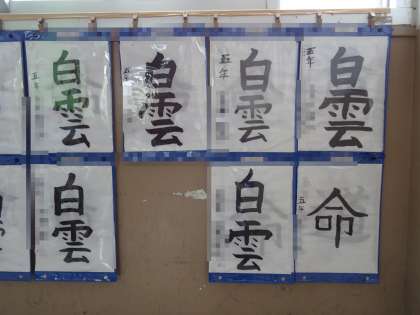 五年 白雲
五年 白雲
五年 白雲
五年 白雲
白雲
白雲
五年 命